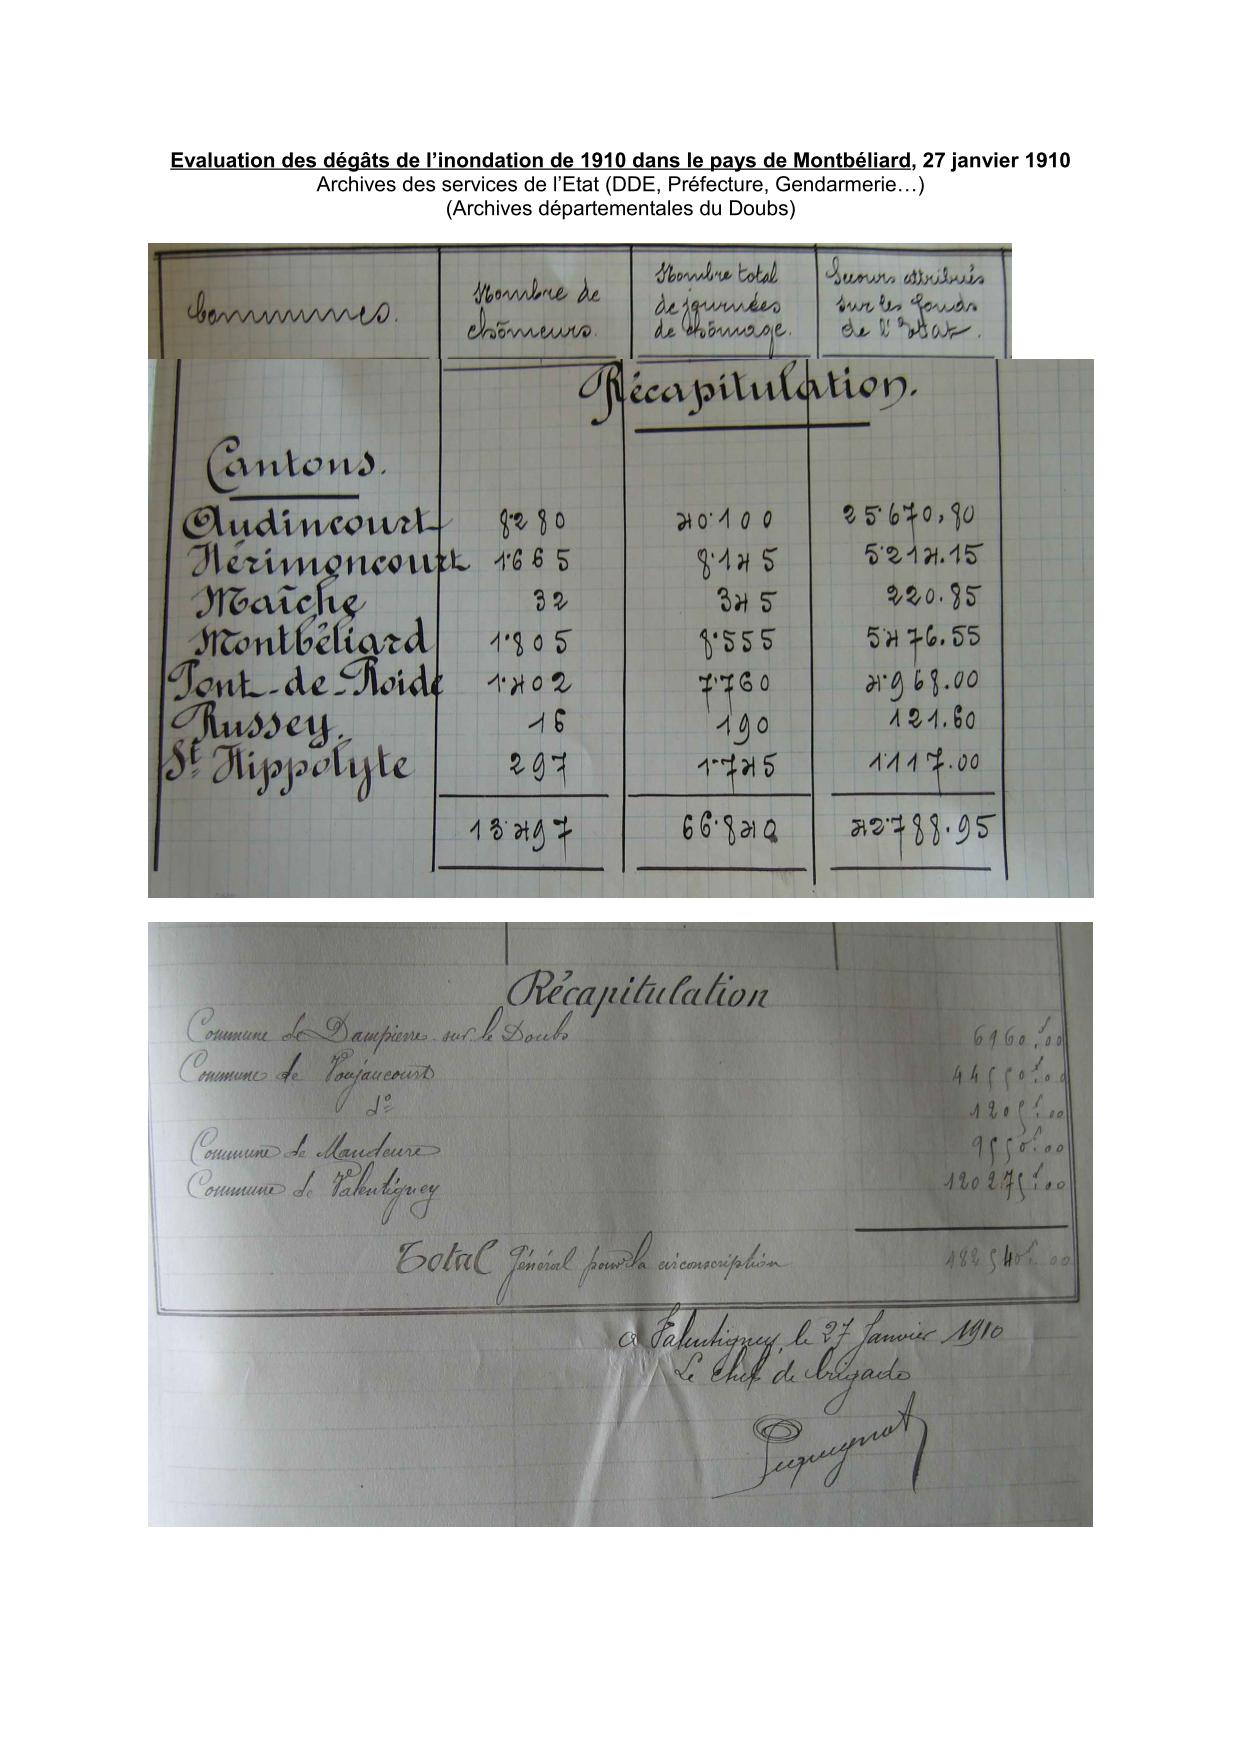 Evaluation des dégâts de l’inondation de 1910 dans le pays de Montbéliard, 27 janvier 1910
Archives des services de l’Etat (DDE, Préfecture, Gendarmerie…)
(Archives départementales du Doubs)
Communes. Nombre de chômeurs. Nombre total de journées de chômage. Secours attribués sur les fonds de l'Etat.
Récapitulation.
Cantons.
Audincourt 8.280 40.100 25.670,80
Hérimoncourt 1.665 8.145 5.214.15
Maîche 32 345 220.85
Montbéliard 1.805 8.555 5.476.55
Pont-de-Roide 1.402 7.760 4.968.00
Russey. 16 190 121.60
St Hippolyte 297 1.745 1.117.00
13.497 66.840 42.788.95
Récapitulation
Commune de Dampierre sur le Doubs 6960f.00
Commune de Voujaucourt 44550f.00
do 1205f.00
Commune de Mandeure 9550f.00
Commune de Valentigney 120275f.00
Total Général pour la circonscription 182540f.00
à Valentigney, le 27 Janvier 1910
Le chef de brigade